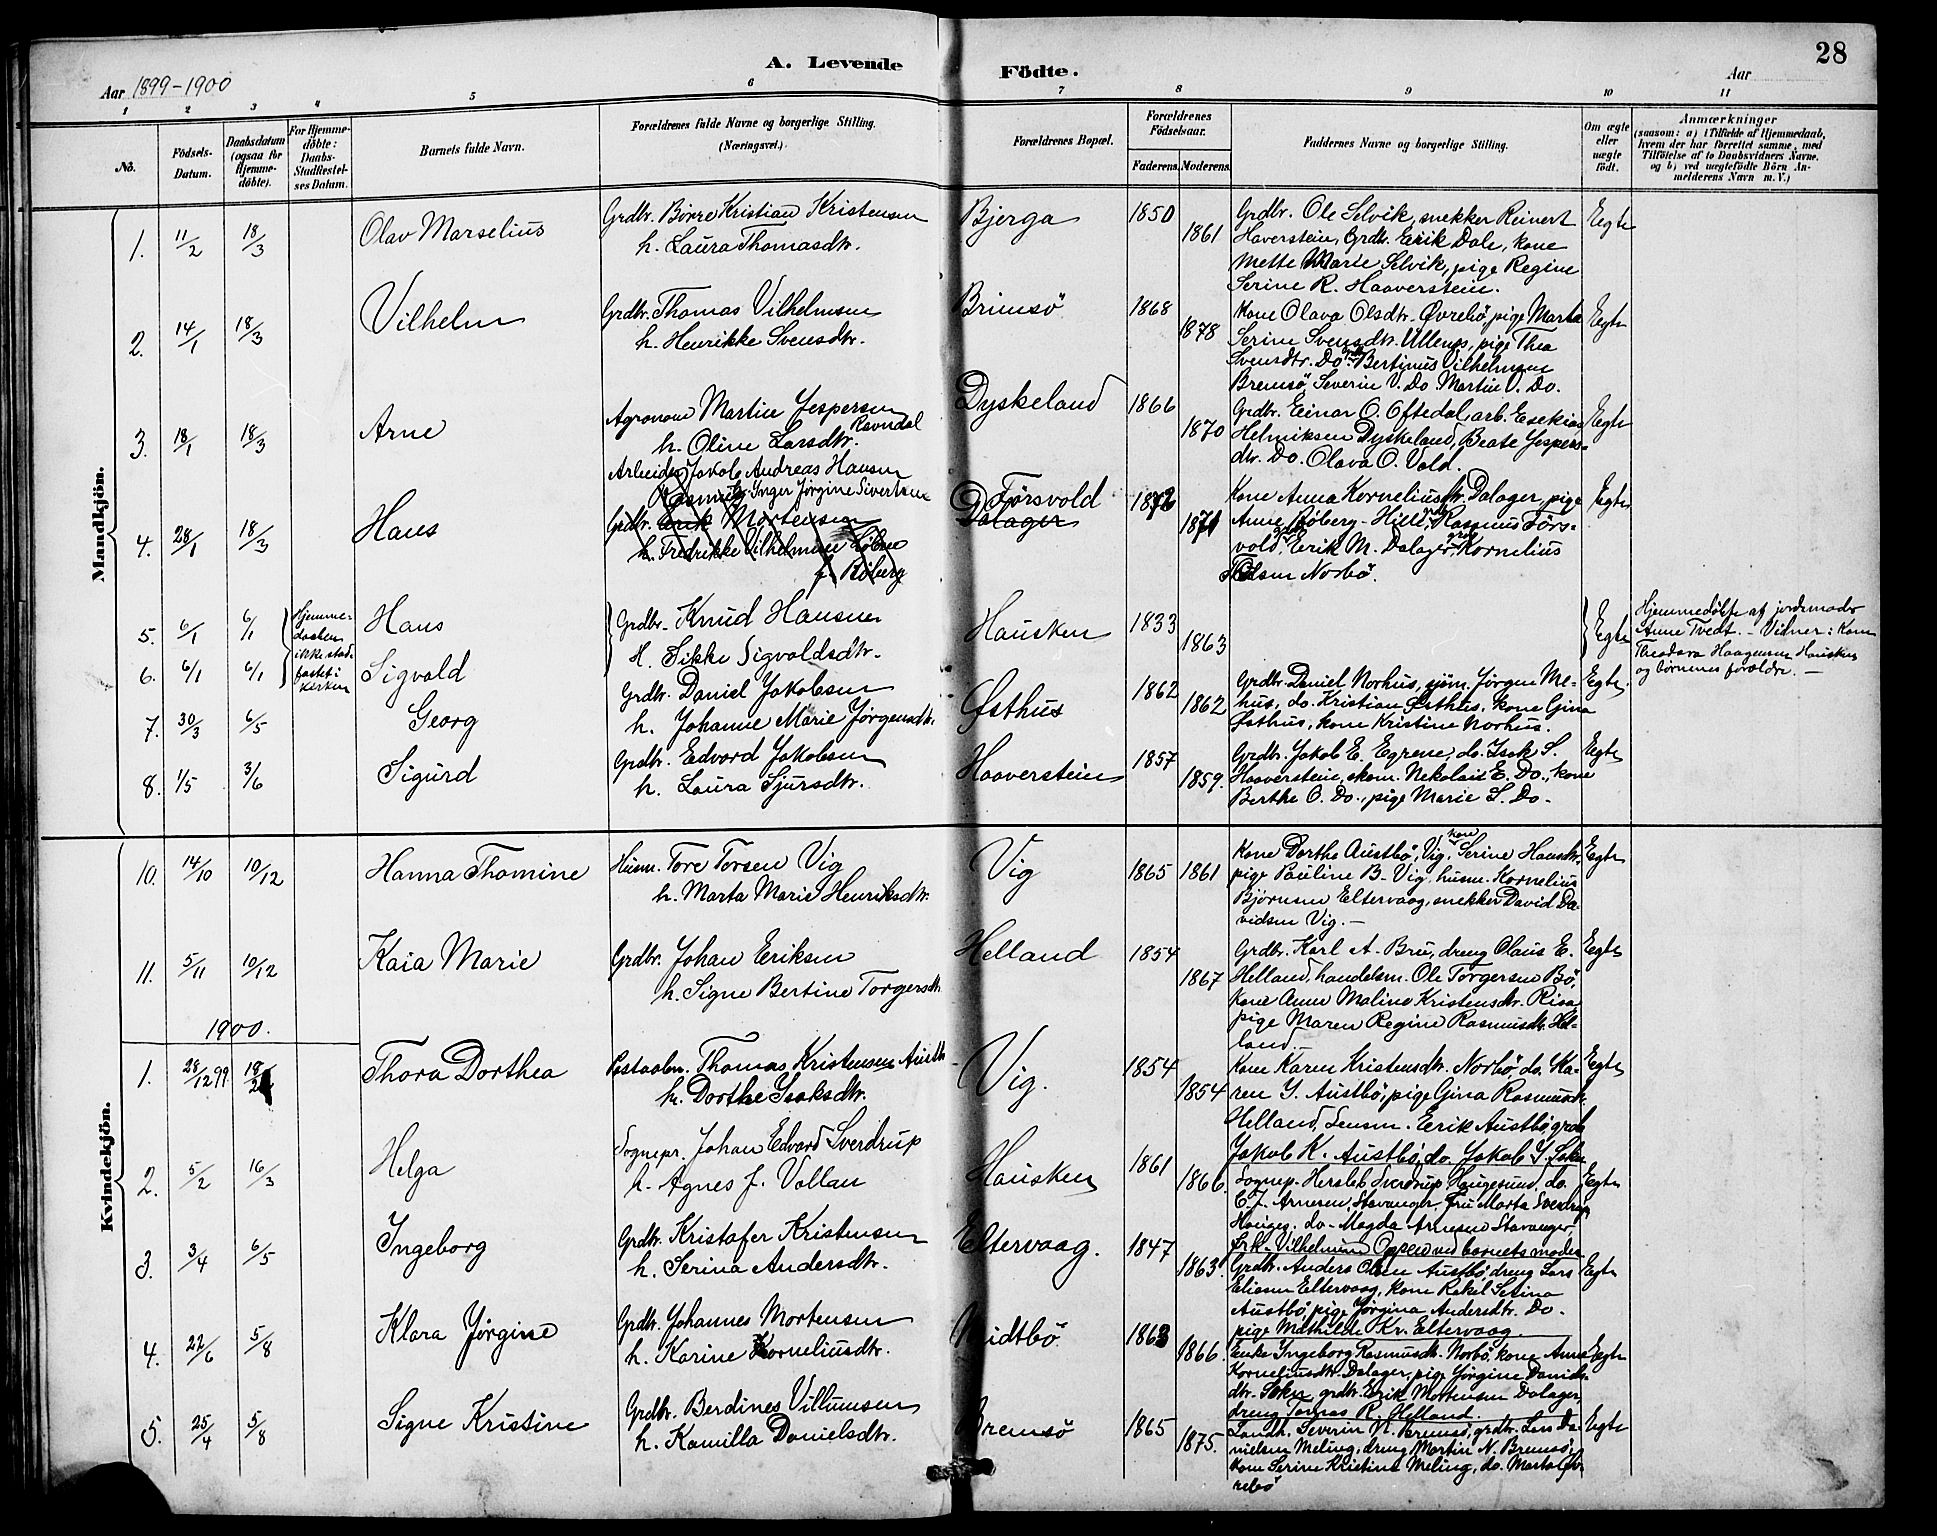 28
A. Levende Födte.
Aar 1899-1900
Aar
1 2 3 4 5 6 7 8 9 10 11
No.
Födsels-Datum.
Daabsdatum (ogsaa for Hjemmedöbte).
For Hjemmedöbte: Daabs-Stadfæstelses Datum.
Barnets fulde Navn.
Forældrenes fulde Navne og borgerlige Stilling. (Næringsvei.)
Forældrenes Bopæl.
Forældrenes Födselsaar.
Faderens. Moderens.
Faddernes Navne og borgerlige Stilling.
Om ægte eller uægte födt.
Anmærkninger
(saasom: a) i Tilfælde af Hjemmedaab, hvem der har forrettet samme, med Tilföielse af to Daabsvidners Navne, og b) ved uægtefödte Börn Anmelderens Navn m. V.)
Mandkjön.
1. 11/2 18/3 Olav Marselius
Grdbr. Börre Kristian Kristensen
h. Laura Thomasdtr.
Bjerga 1850 1861
Grdbr. Ole Selvik, snekker Reinert
Haverstein, Grdbr. Eirik Dale, kone
Mette Marie Selvik, pige Regine
Serine R. Haaverstein.
Eegte
2. 14/1 18/3 Vilhelm
Grdbr. Thomas Vilhelmsen
h. Henrikke Svensdtr.
Brimsö 1868 1878
Kone Olava Olsdtr. Övrebö, pige Marta
Serine Svensdtr. Ullenes, pige Thea
Svensdtr. Do. Bertinius Vilhelmsen
Bremsö, Severin V. Do. Martin V. Do.
Eegte
3. 18/1 18/3 Arne
Agronom Martin Jespersen Ravndal
h. Oline Larsdtr.
Dyskeland 1866 1870
Grdbr. Einar O. Oftedal, arb. Esekias
Helmiksen Dyskeland, Beate Jespers-
dtr. Do. Olava O. Vold.
Eegte
4. 28/1 18/3 Hans
Arbeider Jakob Andreas Hansen
Inger Jörgine Sivertsen
Grdbr. Erik Mortensen
h. Fredrikke Vilhelmine
f. Röberg
Försvold
Dalager
1872 1871
Kone Anna Korneliusdtr. Dalager, pige
Anne Röberg Hille, Rasmus Förs-
vold, Erik M. Dalager, Kornelius
Olsen Norbö.
Eegte
5. 6/1 6/1 Hjemmedaaben ikke stadfæstet i kirken Hans
Grdbr. Knud Hansen
H. Sikke Sigvaldsdtr.
Hausken 1833 1863
Eegte
Hjemmedöbte af jordemoder
Anne Tvedt. - Vidner: Kone
Theodora Haagensen Hausken
og börnenes forældre. -
6. 6/1 6/1 Sigvald
7. 30/3 6/5 Georg
Grdbr. Daniel Jakobsen
h. Johanne Marie Jörgensdtr.
Östhus 1862 1862
Grdbr. Daniel Norhus, sjöm. Jörgen Me-
hus, do. Kristian Östhus, kone Gina
Östhus, kone Kristine Norhus.
Egte.
8. 1/5 3/6 Sigurd
Grdbr. Edvard Jakobsen
h. Laura Sjursdtr.
Haaverstein 1857 1859.
Grdbr. Jakob E. Egrene, do. Isak S.
Haaverstein, skom. Nekolais E. Do., kone
Berthe O. Do., pige Marie S. Do.
Eegte
Kvindekjön.
10. 14/10 10/12 Hanna Thomine
Husm. Tore Torsen Vig
h. Marta Marie Henriksdtr.
Vig 1865 1861
Kone Dorthe Austbö, Vig, kone Serine Hansdtr.
pige Pauline B. Vig, husm. Kornelius
Björnsen Eltervaag, snekker David Da-
vidsen Vig. -
Eegte
11. 5/11 10/12 Kaia Marie
Grdbr. Johan Eriksen
h. Signe Bertine Torgersdtr.
Helland 1854 1867
Grdbr. Karl A. Bru, dreng Olaus E.
Helland, handelsm. Ole Torgersen Bö,
kone Anne Maline Kristensdtr. Risa
pige Maren Regine Rasmusdtr. Hel-
land.
Eegte
1900.
1. 28/12 99 18/2 Thora Dorthea
Postaabn. Thomas Kristensen Austb
h. Dorthe Isaksdtr.
Vig. 1854 1854
Kone Karen Kristensdtr. Norbö, do. Ka-
ren Y. Austbö, pige Gina Rasmusdtr.
Helland, Lensm. Eerik Austbö, grdb
Jakob K. Austbö, do. Jakob I. Sokn
Eegte
2. 5/2 16/3 Helga
Sognepr. Johan Edvard Sverdrup
h. Agnes f. Vollan
Hausken 1861 1866.
Sognep. Hersleb Sverdrup Haugesund, do.
C. J. Arnesen, Stavanger, Fru Marta Sverdrup
Hauges. do. Magda Arnesen Stavanger,
Frk. Vilhelmine Oppen ved barnets moder
Eegte
3. 3/4 6/5 Ingeborg
Grdbr. Kristofer Kristensen
h. Serina Andersdtr.
Eltervaag. 1847 1863
Grdbr. Anders Olsen Austbö, dreng Lars
Eliasen Eltervaag, kone Rakel Setina
Austbö, pige Jörgina Andersdtr. Do.
pige Mathilde Kr. Eltervaag.
Eegte
4. 22/6 5/8 Klara Jörgine
Grdbr. Johannes Mortensen
h. Karine Korneliusdtr.
Midtbö 1863 1866.
Enke Ingeborg Rasmusdtr. Norbö, kone Anne
Korneliusdtr. Dalager, pige Jörgine Daniels-
dtr. Sokn, grdbr. Erik Mortensen Dalager,
dreng Tomas R. Helland.
Eegte
5. 25/4 5/8 Signe Kristine
Grdbr. Berdines Villumsen
h. Kamilla Danielsdtr.
Bremsö 1865 1875.
Landh. Severin V. Bremsö, grdbr. Lars Da-
nielsen Meling, dreng Martin N. Bremsö,
kone Serine Kristine Meling, do. Marta Öv-
rebö
Eegte